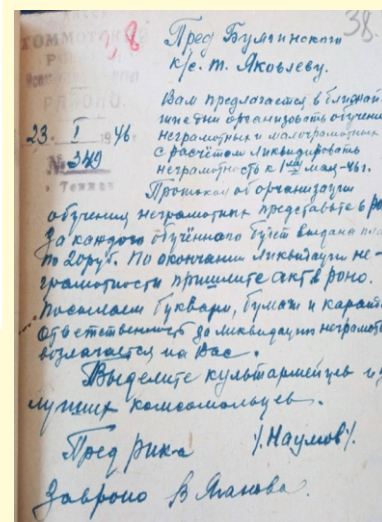 38.
3,8
ТОММОТСКИЙ
РАЙОНО.
23. I 1946
№ 349
г. Томмот
Пред Булгинского
к/с. т. Яковлеву.
Вам предлагается в ближай
шие дни организовать обучение
неграмотных и малограмотных
с расчётом ликвидировать
неграмотность к 1му мая-46 г.
Протокол об организации
обучения неграмотных представьте в ро
За каждого обучённого будет выдана пла
по 20 руб. По окончании ликвидации не-
грамотности пришлите акт в роно.
Посылаем буквари, бумаги и каранд
Ответственность за ликвидацию неграмотн
возлагается на Вас.
Выделите культармейцев из
лучших комсомольцев.
Пред рика /Наумов/.
Завроно